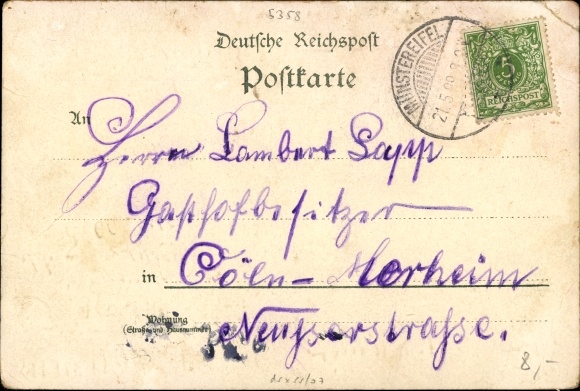 5358
Deutsche Reichspost
Postkarte
MÜNSTEREIFEL
5
REICHSPOST
An
Herrn Lambert Lapp
Gasthofbesitzer
in Cöln-Merheim
Wohnung
(Straße und Hausnummer)
Neusserstrasse.
8,-